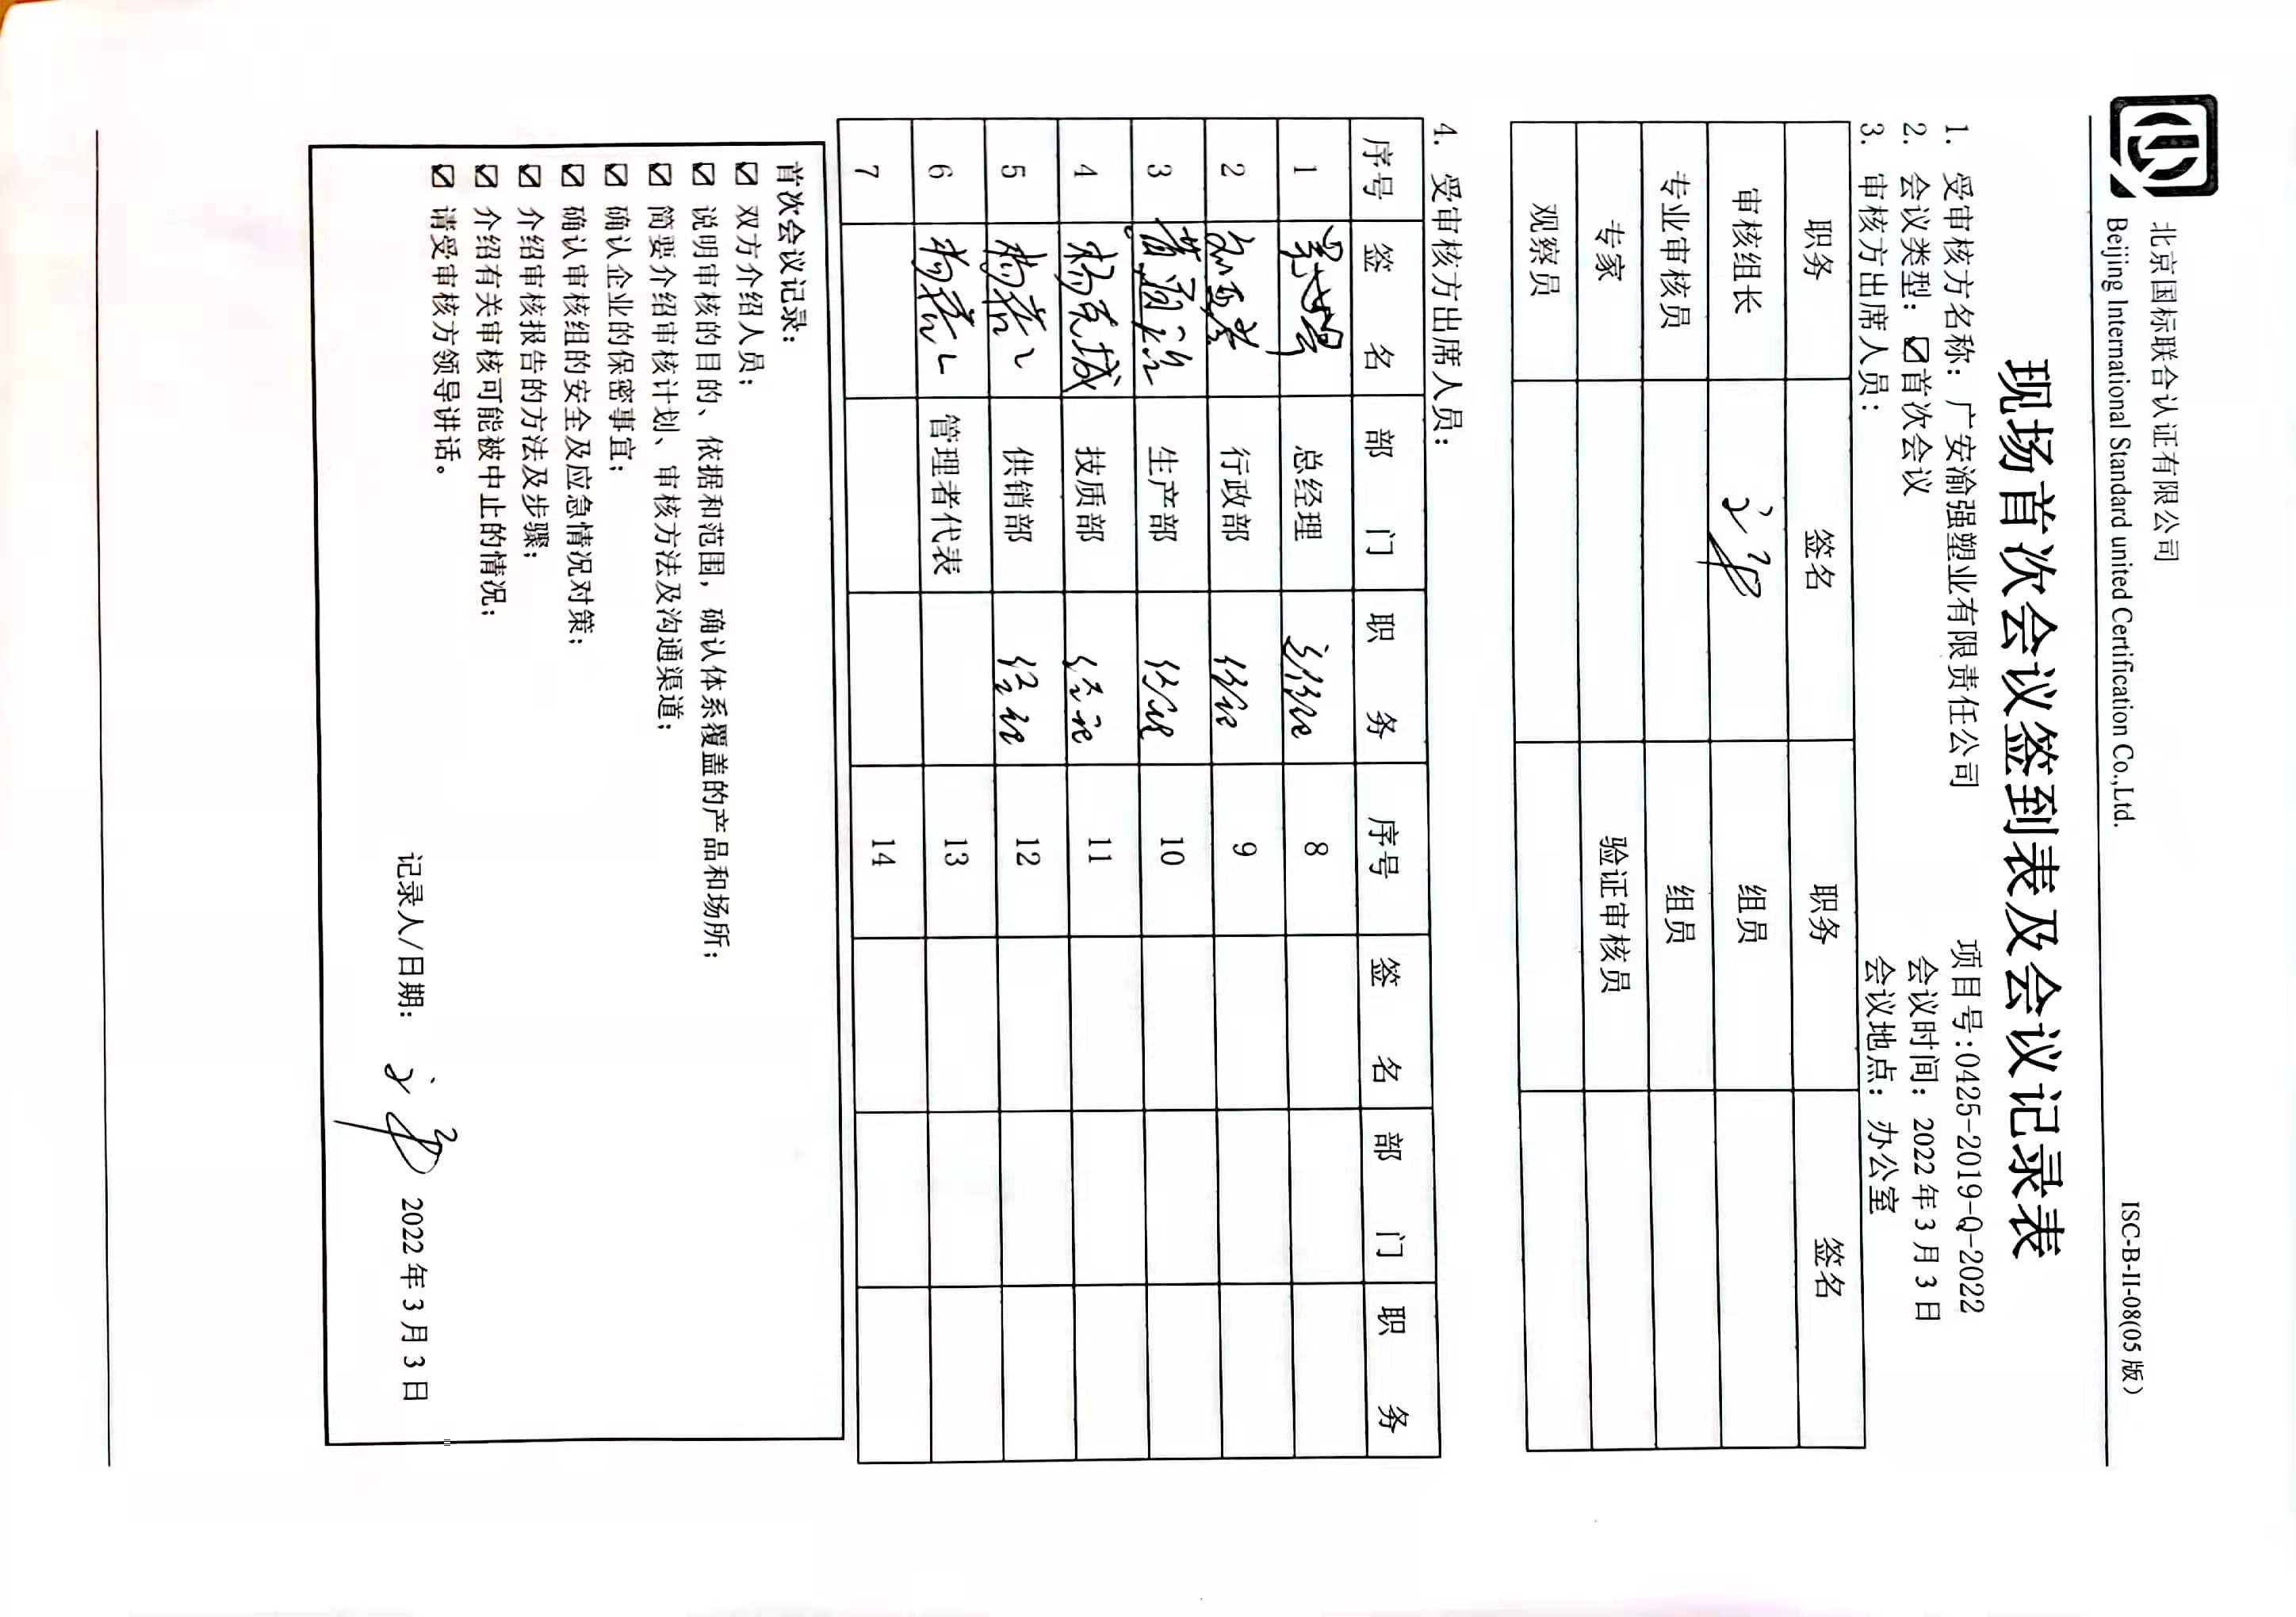 北京国标联合认证有限公司
Beijing International Standard united Certification Co.,Ltd.
ISC-B-II-08(05 版)
现场首次会议签到表及会议记录表
1. 受审核方名称：广安渝强塑业有限责任公司 项目号:0425-2019-Q-2022
2. 会议类型：☑首次会议 会议时间：2022 年 3 月 3 日
3. 审核方出席人员： 会议地点：办公室
职务 签名 职务 签名
审核组长 组员
专业审核员 组员
专家 验证审核员
观察员
4. 受审核方出席人员：
序号 签 名 部 门 职 务 序号 签 名 部 门 职 务
1 总经理 总经理 8
2 行政部 经理 9
3 生产部 经理 10
4 技质部 经理 11
5 供销部 经理 12
6 管理者代表 13
7 14
首次会议记录：
☑ 双方介绍人员；
☑ 说明审核的目的、依据和范围，确认体系覆盖的产品和场所；
☑ 简要介绍审核计划、审核方法及沟通渠道；
☑ 确认企业的保密事宜；
☑ 确认审核组的安全及应急情况对策；
☑ 介绍审核报告的方法及步骤；
☑ 介绍有关审核可能被中止的情况；
☑ 请受审核方领导讲话。
记录人/日期： 2022 年 3 月 3 日